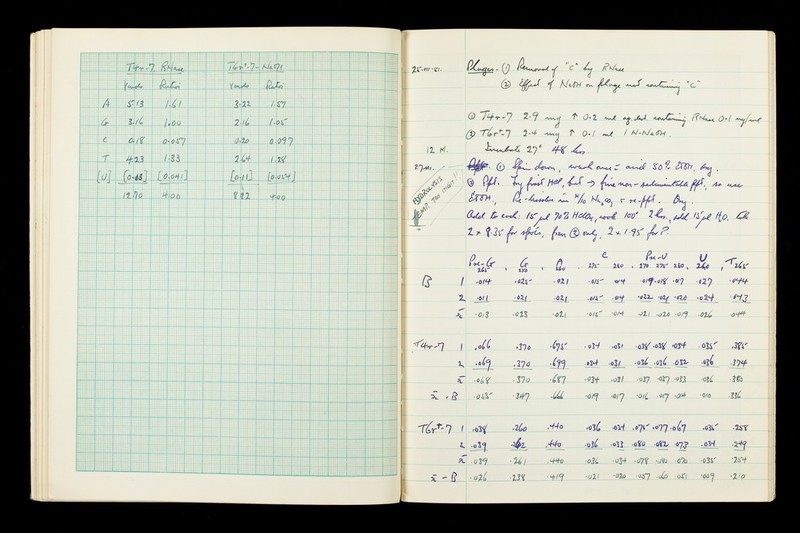 T4r-7 RNase T6r⁺-7-NaOH
γmols Ratios γmols Ratios
A 5·13 1·61 3·22 1·57
G 3·16 1·00 2·16 1·05
C 0·18 0·057 0·20 0·097
T 4·23 1·33 2·64 1·28
[U] [0·13] [0·041] [0·11] [0·054]
12·70 4·00 8·22 4·00
25·III·51. Phages - ① Removal of "C" by RNase
② Effect of NaOH on phage not containing "C"
① T4r-7 2·9 mg ↑ 0·2 ml containing RNase 0·1 mg/ml
② T6r⁺-7 2·4 mg ↑ 0·1 ml 1 N-NaOH.
12 M. Incubate 27° 48 hrs.
27·III. ① Spin down, wash once acid 50% EtOH, dry.
② Ppt. by first HCl, but → give non-sedimentable ppt, so use
HYDROLYSIS TEMP. TOO HIGH!
EtOH. Re-dissolve in M/10 Na₂CO₃ re-ppt. Dry.
Add to each: 15 µl 70% HClO₄, cook 100° 2 hrs, add 15 µl H₂O.
2 × 9·35 for spots, from ② only, 2 × 1·95 for P.
Pre-G G A C Pre-U U T
265 250 260 275 280 270 275 280 260 265
B 1 ·014 ·025 ·021 ·015 ·014 ·019 ·018 ·017 ·027 ·044
2 ·011 ·021 ·021 ·015 ·014 ·022 ·021 ·020 ·024 ·043
x̄ ·013 ·023 ·021 ·015 ·014 ·021 ·020 ·019 ·026 ·044
T4r-7 1 ·066 ·370 ·675 ·034 ·031 ·038 ·038 ·034 ·035 ·385
2 ·069 ·370 ·699 ·034 ·031 ·036 ·036 ·032 ·036 ·374
x̄ ·068 ·370 ·687 ·034 ·031 ·037 ·037 ·033 ·036 ·380
x̄ - B ·055 ·347 ·666 ·019 ·017 ·016 ·017 ·014 ·010 ·336
T6r⁺-7 1 ·038 ·260 ·440 ·036 ·034 ·075 ·077 ·067 ·035 ·258
2 ·039 ·262 ·440 ·036 ·033 ·080 ·082 ·073 ·034 ·249
x̄ ·039 ·261 ·440 ·036 ·034 ·078 ·080 ·070 ·035 ·254
x̄ - B ·026 ·238 ·419 ·021 ·020 ·057 ·060 ·051 ·009 ·210